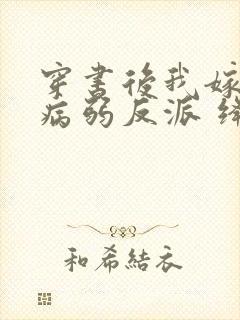 穿書後我嫁
病弱反派
和希結衣